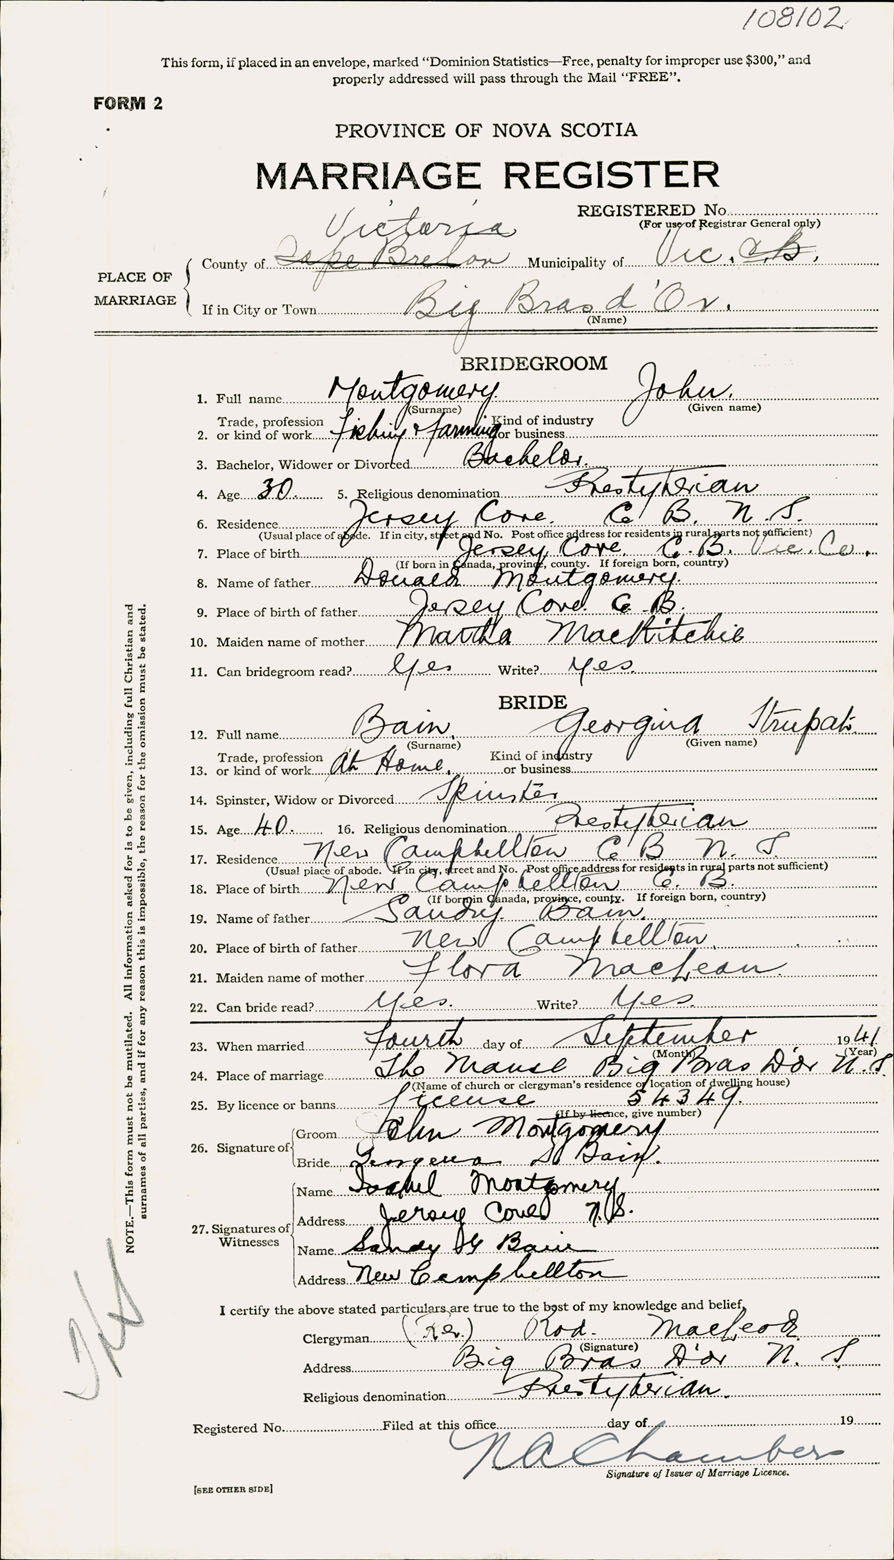 108102
This form, if placed in an envelope, marked "Dominion Statistics—Free, penalty for improper use $300," and
properly addressed will pass through the Mail "FREE".
FORM 2
PROVINCE OF NOVA SCOTIA
MARRIAGE REGISTER
REGISTERED No.
(For use of Registrar General only)
Victoria
PLACE OF MARRIAGE
County of Cape Breton Municipality of Vic. C.B.
If in City or Town Big Bras d'Or.
(Name)
BRIDEGROOM
1. Full name Montgomery John.
(Surname) (Given name)
2. Trade, profession or kind of work Fishing & farming Kind of industry or business
3. Bachelor, Widower or Divorced Bachelor.
4. Age 30. 5. Religious denomination Presbyterian
6. Residence Jersey Cove. C B. N. S.
(Usual place of abode. If in city, street and No. Post office address for residents in rural parts not sufficient)
7. Place of birth Jersey Cove C.B. Vic. Co.
(If born in Canada, province, county. If foreign born, country)
8. Name of father Donald Montgomery.
9. Place of birth of father Jersey Cove C B.
10. Maiden name of mother Martha MacRitchie
11. Can bridegroom read? Yes Write? Yes.
BRIDE
12. Full name Bain, Georgina
(Surname) (Given name)
13. Trade, profession or kind of work At Home. Kind of industry or business
14. Spinster, Widow or Divorced Spinster
15. Age 40. 16. Religious denomination Presbyterian
17. Residence New Campbellton C B N. S.
(Usual place of abode. If in city, street and No. Post office address for residents in rural parts not sufficient)
18. Place of birth New Campbellton C. B.
(If born in Canada, province, county. If foreign born, country)
19. Name of father Sandy Bain.
20. Place of birth of father New Campbellton.
21. Maiden name of mother Flora MacLean.
22. Can bride read? Yes. Write? Yes.
23. When married Fourth day of September 1941
(Month) (Year)
24. Place of marriage The Manse Big Bras D'or N.S.
(Name of church or clergyman's residence or location of dwelling house)
25. By licence or banns license 54349.
(If by licence, give number)
26. Signature of
Groom John Montgomery
Bride Georgena S Bain.
27. Signatures of Witnesses
Name Isabel Montgomery
Address Jersey Cove N.S.
Name Sandy Bain
Address New Campbellton
I certify the above stated particulars are true to the best of my knowledge and belief.
Clergyman (Rev.) Rod. MacLeod
(Signature)
Address Big Bras D'or N. S.
Religious denomination Presbyterian.
Registered No. Filed at this office day of 19
N A Chambers
Signature of Issuer of Marriage Licence.
[SEE OTHER SIDE]
NOTE.—This form must not be mutilated. All information asked for is to be given, including full Christian and
surnames of all parties, and if for any reason this is impossible, the reason for the omission must be stated.